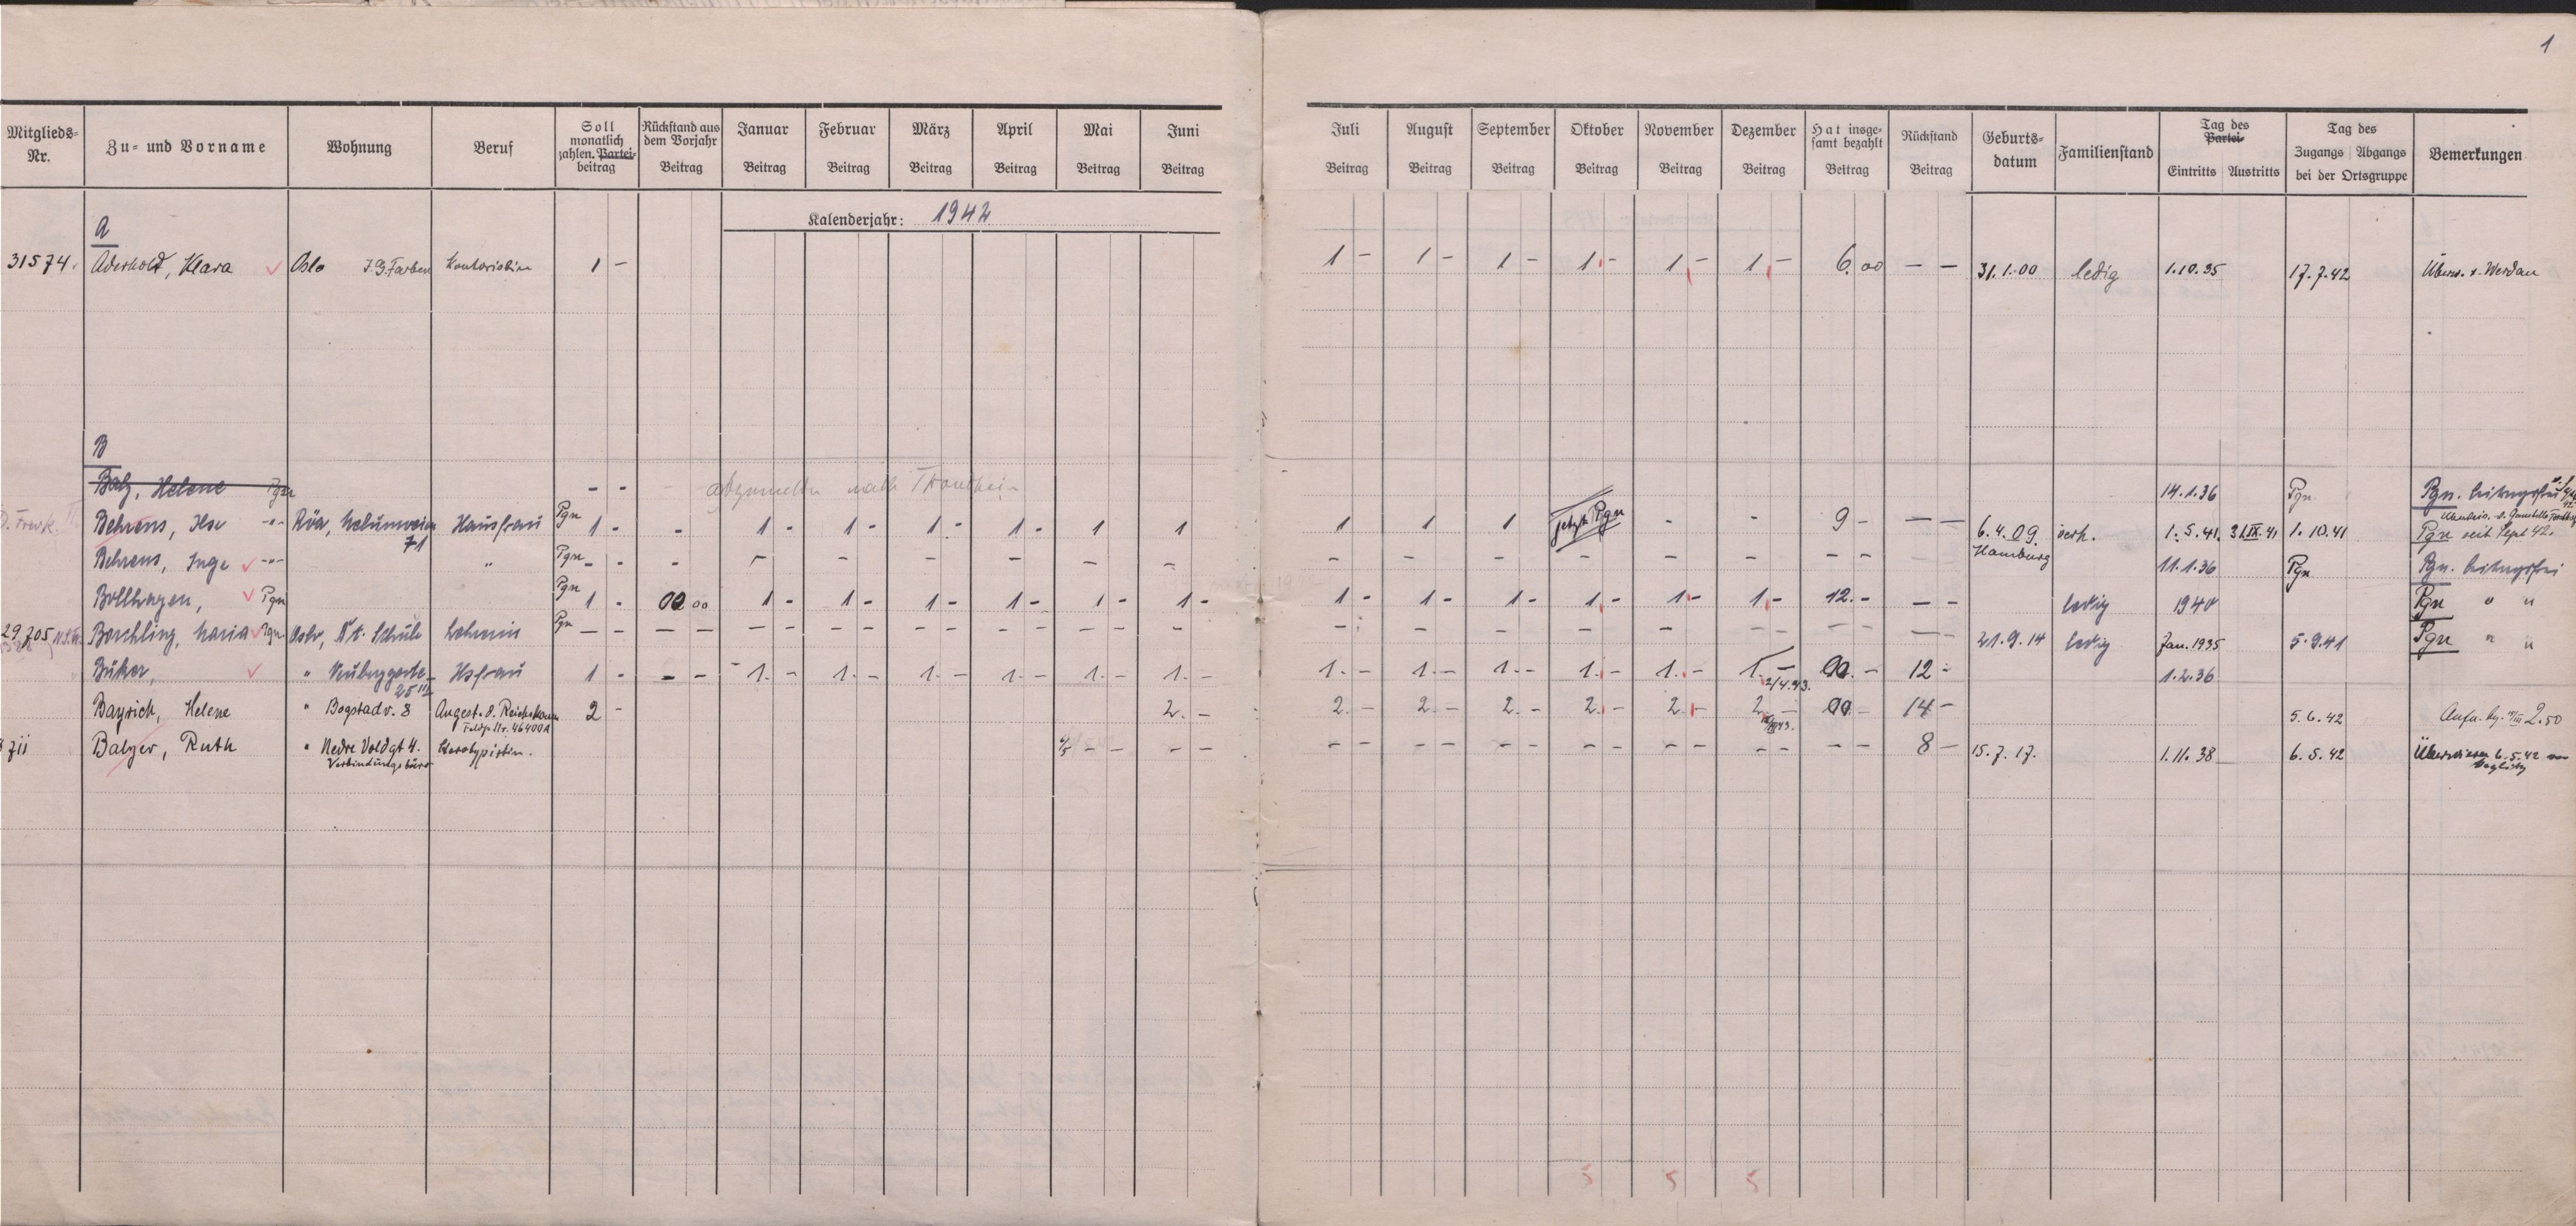 1
Mitglieds-Nr. Zu- und Vorname Wohnung Beruf Soll monatlich zahlen. Partei-beitrag Rückstand aus dem Vorjahr Beitrag Januar Beitrag Februar Beitrag März Beitrag April Beitrag Mai Beitrag Juni Beitrag Juli Beitrag August Beitrag September Beitrag Oktober Beitrag November Beitrag Dezember Beitrag Hat insge-samt bezahlt Beitrag Rückstand Beitrag Geburts-datum Familienstand Tag des Partei- Eintritts Austritts Tag des Zugangs Abgangs bei der Ortsgruppe Bemerkungen
Kalenderjahr: 1942
A
31574. Aderhold, Klara Oslo I.G. Farben Kontoristin 1 - 1 - 1 - 1 - 1 - 1 - 1 - 6.00 - - 31.1.00 ledig 1.10.35 17.7.42 Überw. v. Werdau
B
Balz, Helene Pgn - - 14.1.36 Pgn Pgn. beitragsfrei
Behrens, Ilse Röa, 71 Hausfrau Pgn 1 - - 1 - 1 - 1 - 1 - 1 1 1 1 1 jetzt Pgn - - 9 - - - 6.4.09. Hamburg verh. 1.5.41. 31.IX.41 1.10.41 Pgn seit Sept 42.
Behrens, Inge " Pgn - - - - - - - - - - - - - - - - - 11.1.36 Pgn Pgn. beitragsfrei
Bollhagen, Pgn Pgn 1 - 00.00 1 - 1 - 1 - 1 - 1 - 1 - 1 - 1 - 1 - 1 - 1 - 1 - 12. - - - ledig 1940 Pgn " "
29.705 Borchling, Maria Pgn Oslo, Dt. Schule Lehrerin Pgn - - - - - - - - - - - - - - - - - - 21.9.14 ledig Jan. 1935 5.9.41 Pgn " "
Büker, " 25 III Hsfrau 1 - - - 1. - 1. - 1. - 1. - 1. - 1. - 1. - 1. - 1. - 1. - 1. - 1. - 2/4.43. 00. - 12 - 1.2.36
Bayrich, Helene " Bogstadv. 8 Angest. d. Reichskomm Feldp. Nr. 46400A 2 - 2. - 2. - 2. - 2. - 2. - 2. - 2. - 00 - 14 - 5.6.42 Aufn. 2.50
7ii Balzer, Ruth " Nedre Voldgt 4. Verbindungsbüro Stenotypistin. - - - - - - - - - - - - - - - - - - 8 - 15.7.17. 1.11.38 6.5.42 Überwiesen 6.5.42
5 5 5